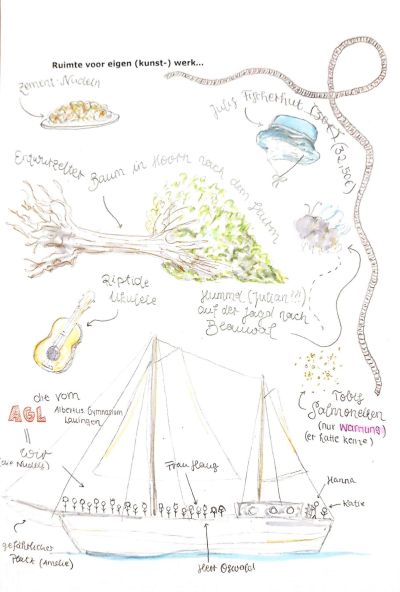 Ruimte voor eigen (kunst-) werk...
Zement-Nudeln
Julis Fischerhut (30€) (32,50€)
Entwurzelter Baum in Hoorn nach dem Sturm
Riptide
Ukulele
Hummel (Julian!!!)
auf der Jagd nach
die vom
AGL Albertus-Gymnasium
Lauingen
=
Wir
(die Nudeln)
Tobis
Salmonellen
(nur Warnung)
(er hatte keine)
Frau Haug
Hanna
Katie
gefährlicher
Platz (Amelie)
Herr Oswald